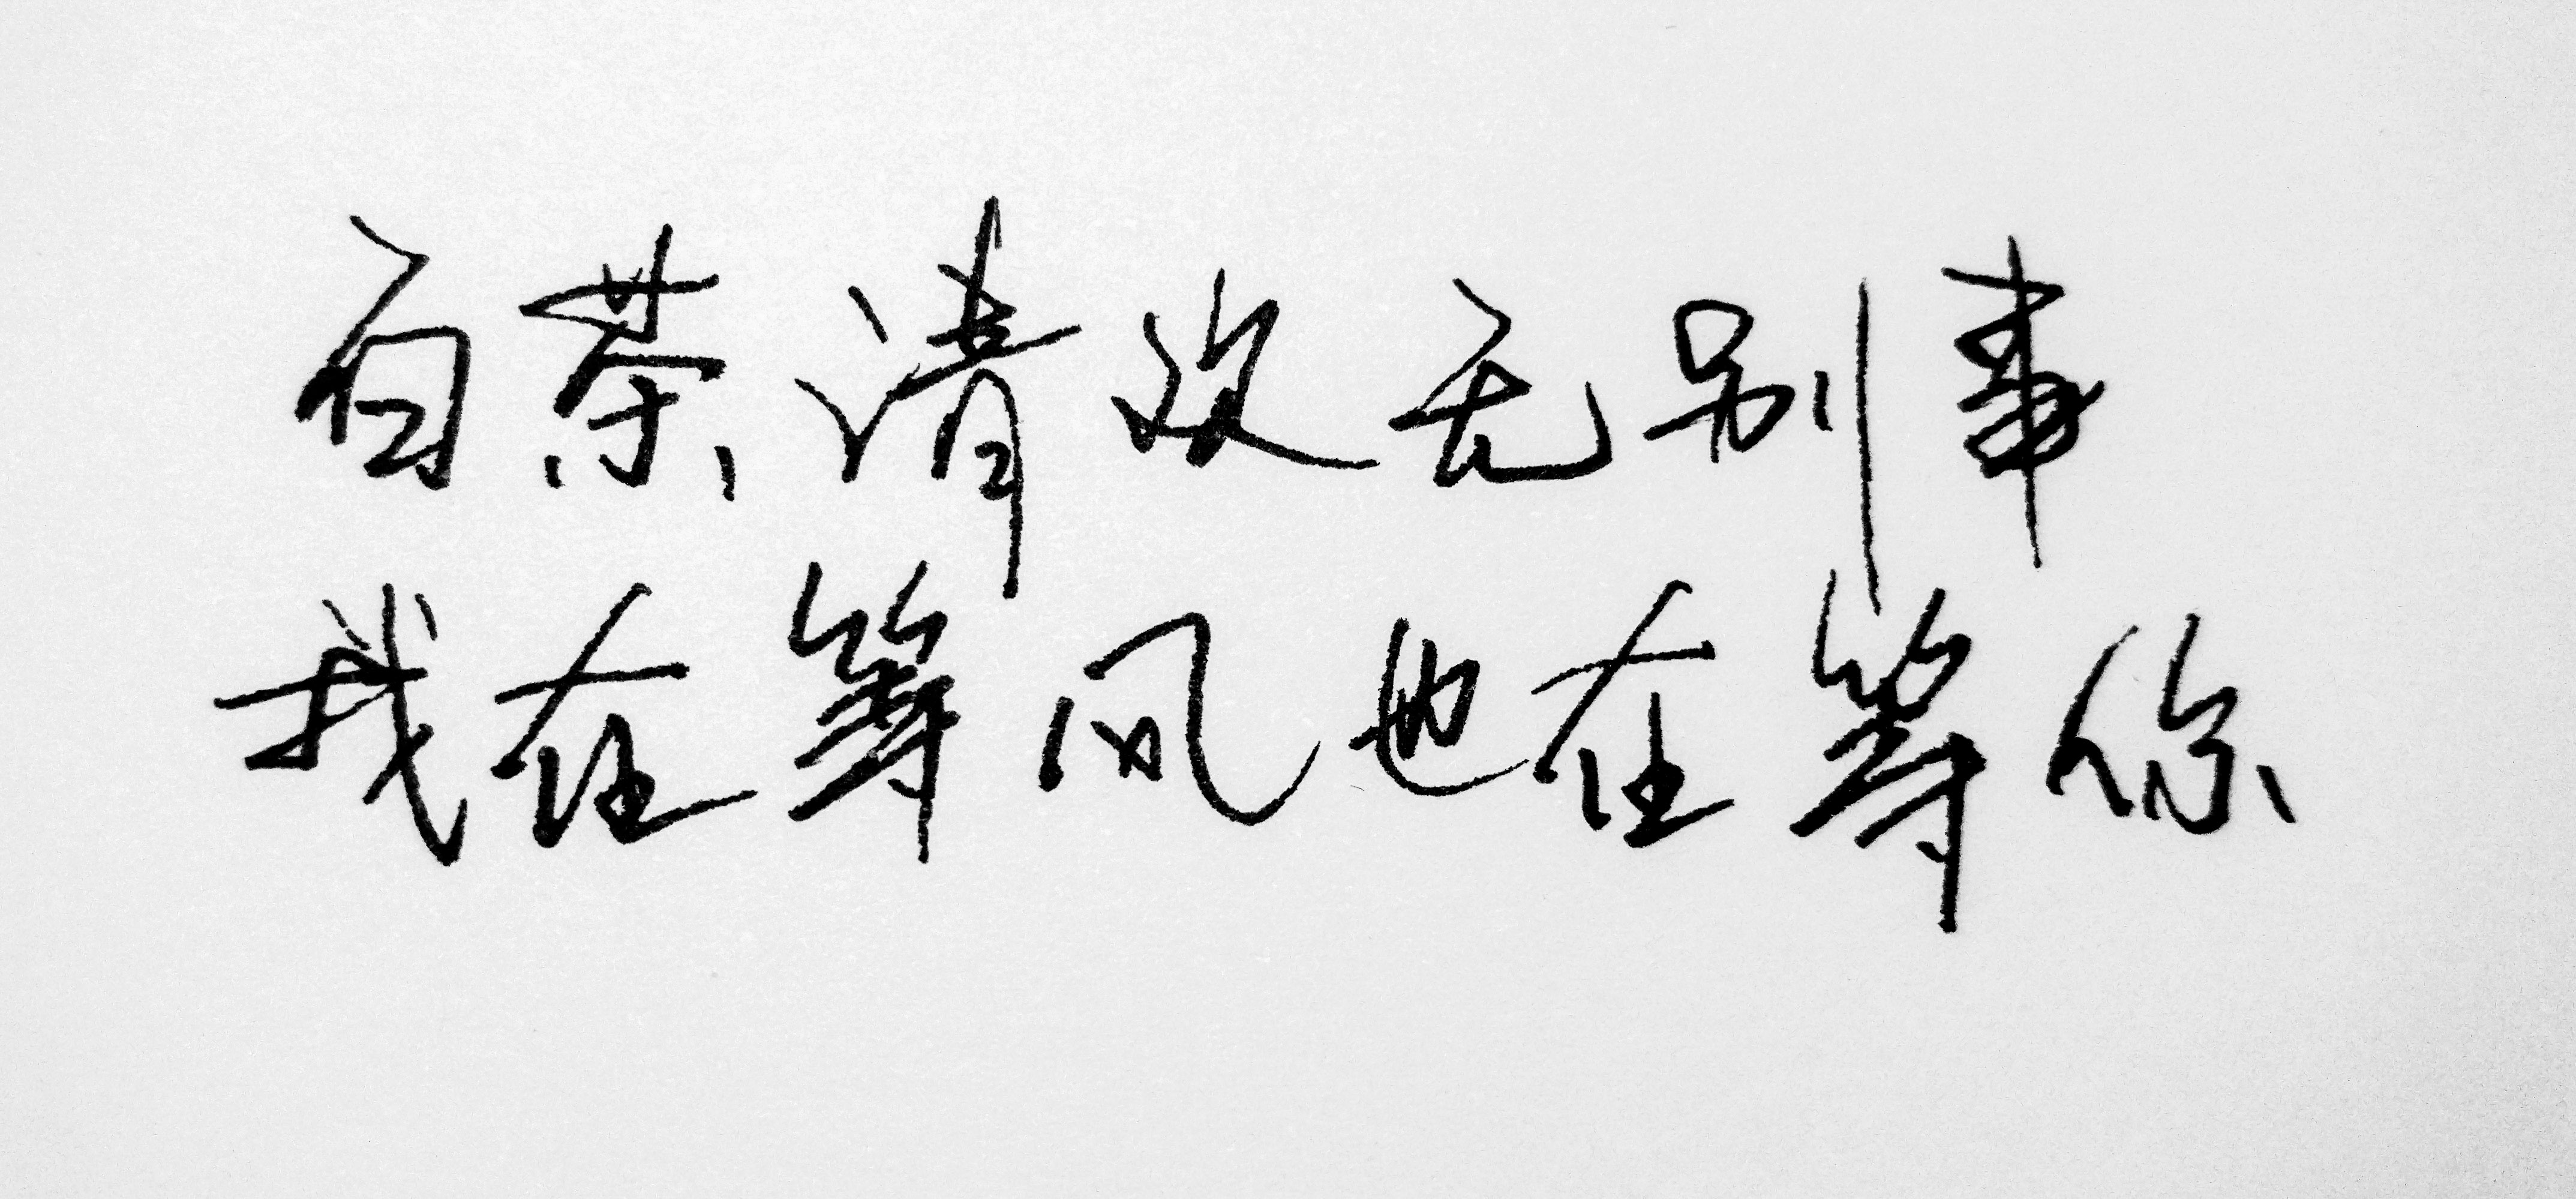 白茶清欢无别事
我在等风也在等你